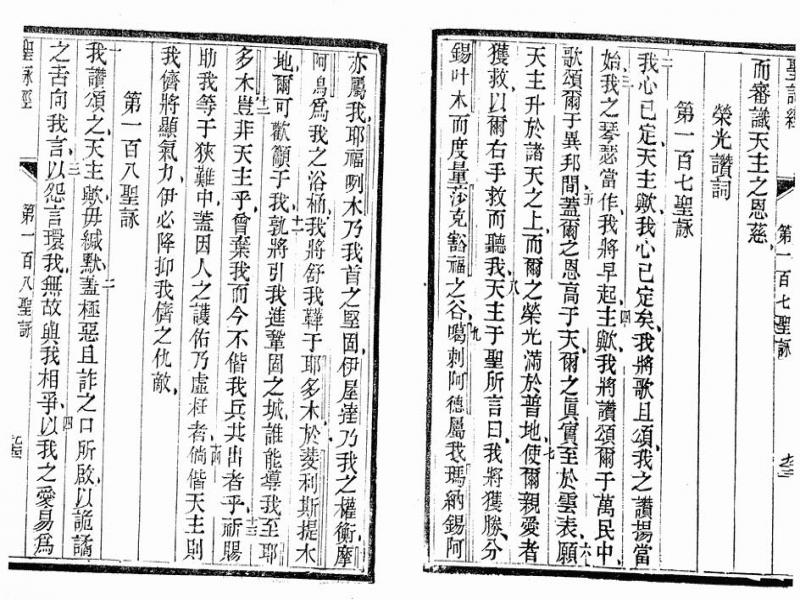 聖詠經
第一百七聖詠
而審識天主之恩慈
榮光讚詞
第一百七聖詠
二
我心已定天主歟我心已定矣我將歌且頌我之讚揚當
三
始我之琴瑟當作我將早起主歟我將讚頌爾于萬民中
四
歌頌爾于異邦間蓋爾之恩高于天爾之眞實至於雲表願
五
六
天主升於諸天之上而爾之榮光滿於普地使爾親愛者
七
獲救以爾右手救而聽我天主于聖所言曰我將獲勝分
八
錫叶木而度量莎克豁福之谷噶剌阿德屬我瑪納錫阿
九
亦屬我耶福咧木乃我首之堅固伊屋達乃我之權衡摩
阿烏爲我之浴桶我將舒我鞾于耶多木於菱利斯提木
十一
地爾可歡籲于我孰將引我進鞏固之城誰能導我至耶
十二
多木豈非天主乎曾棄我而今不偕我兵共出者乎祈賜
十三
助我等于狹難中蓋因人之護佑乃虛枉者倘偕天主則
十四
我儕將顯氣力伊必降抑我儕之仇敵
第一百八聖詠
一
我讚頌之天主歟毋緘默蓋極惡且詐之口所啟以詭譎
二
之舌向我言以怨言環我無故與我相爭以我之愛易爲
三
四
聖詠經
第一百八聖詠